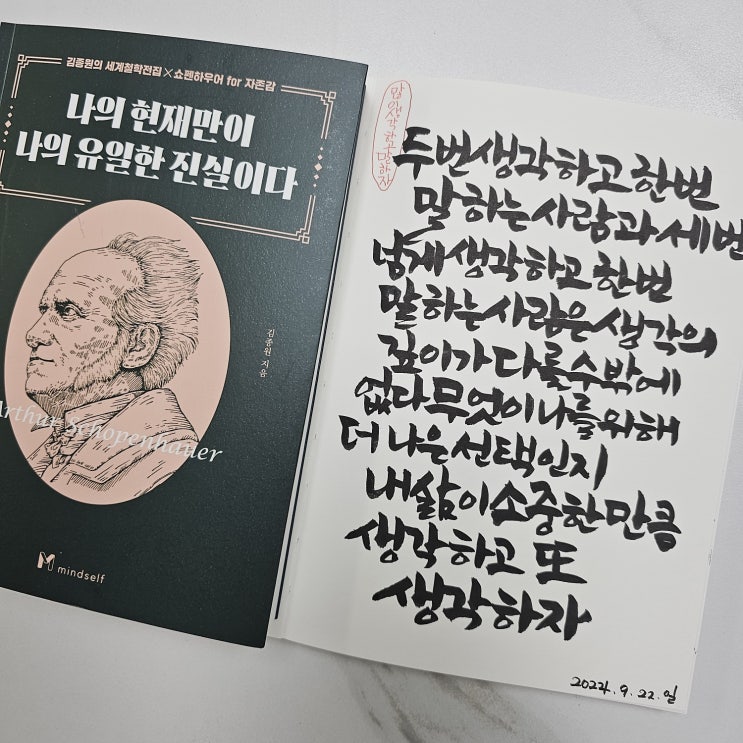 김종원의 세계철학전집×쇼펜하우어 for 자존감
나의 현재만이
나의 유일한 진실이다
김종원 지음
Arthur Schopenhauer
mindself
많이 생각하고 말하자
두번 생각하고 한번
말하는 사람과 세번
넘게 생각하고 한번
말하는 사람은 생각의
깊이가 다를수밖에
없다 무엇이 나를 위해
더 나은 선택인지
내 삶이 소중한 만큼
생각하고 또
생각하자
2024. 9. 22. 일